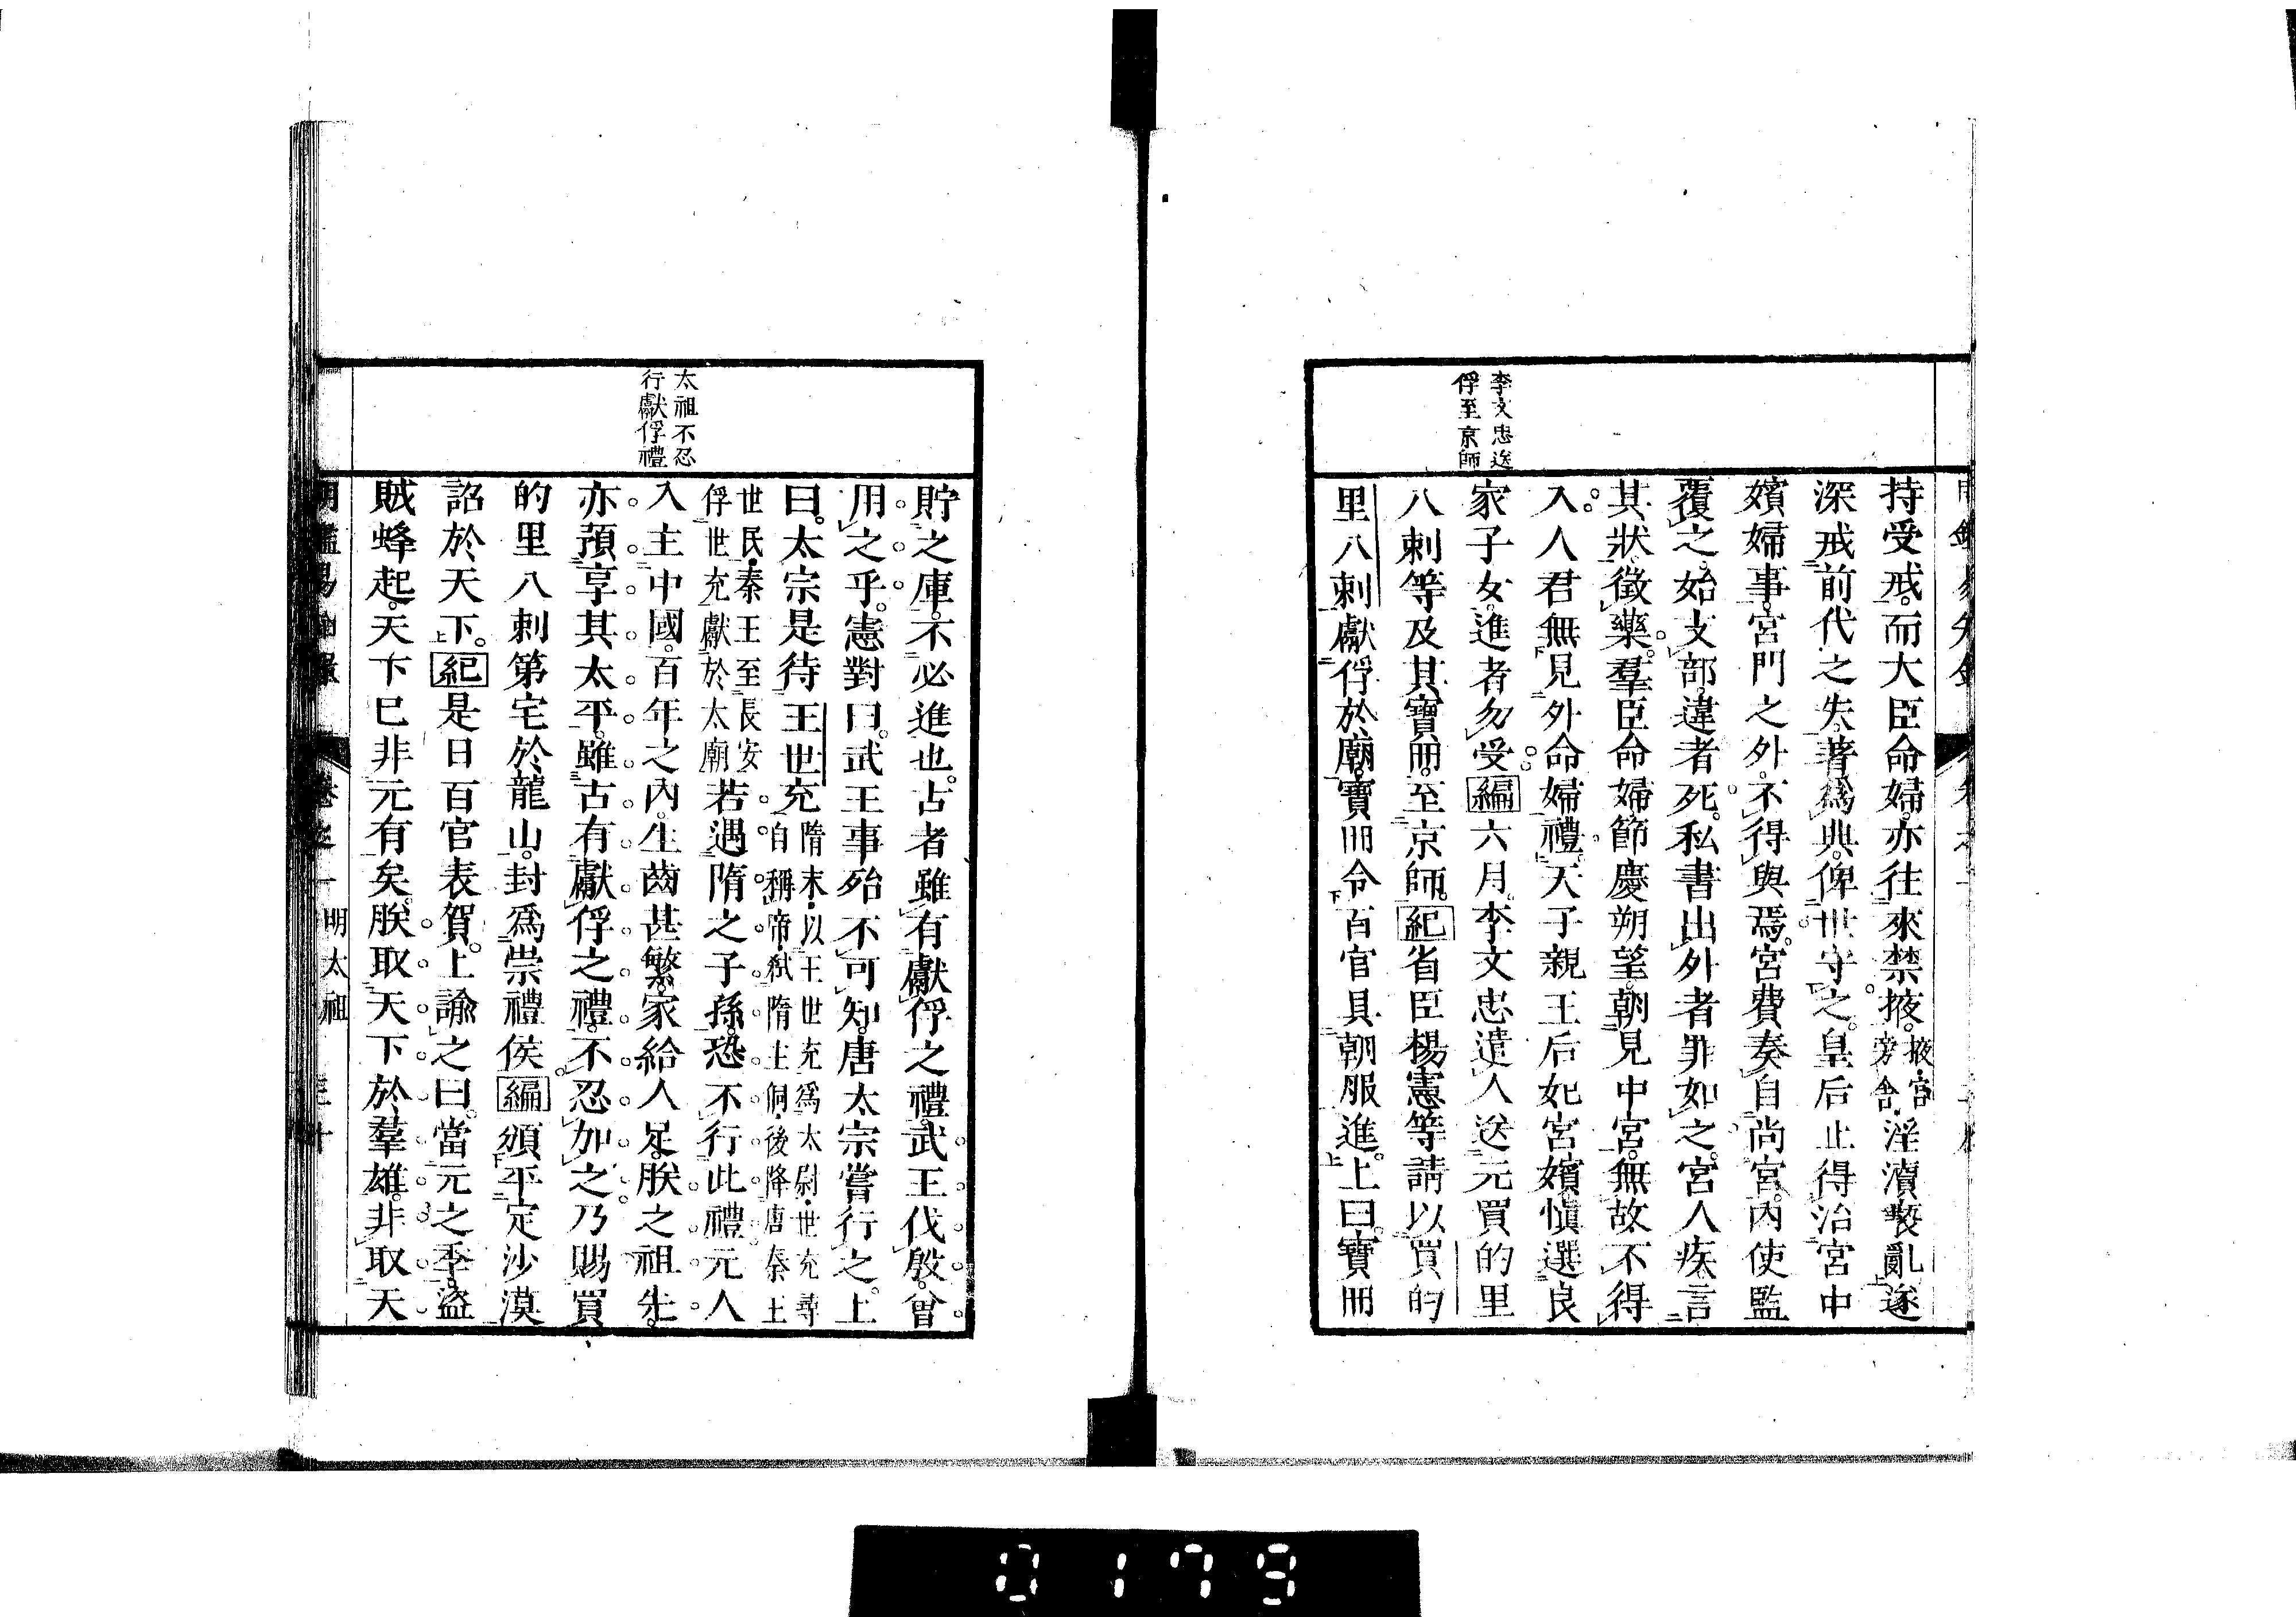 李文忠送
俘至京師
持受戒。而大臣命婦。亦往來禁掖。掖宮旁舍。淫瀆褻亂。遂
深戒前代之失。著爲典。俾世守之。皇后止得治宮中
嬪婦事。宮門之外。不得與焉。宮費奏自尚宮。內使監
覆之。始支部。違者死。私書出外者罪如之。宮人疾。言
其狀。徵藥。羣臣命婦。節慶朔望。朝見中宮。無故不得
入。人君無見外命婦禮。天子親王后妃宮嬪。愼選良
家子女。進者勿受。編六月。李文忠遣人送元買的里
八剌等及其寶冊。至京師。紀省臣楊憲等請以買的
里八剌獻俘於廟。寶冊令百官具朝服進。上曰。寶冊
太祖不忍
行獻俘禮
貯之庫。不必進也。古者雖有獻俘之禮。武王伐殷。曾
用之乎。憲對曰。武王事殆不可知。唐太宗嘗行之。上
曰。太宗是待王世充隋末。以王世充爲太尉。世充尋自稱帝。弑隋主侗。後降唐秦王
世民。秦王至長安俘世充獻於太廟若遇隋之子孫。恐不行此禮。元人
入主中國。百年之內。生齒甚繁。家給人足。朕之祖先。
亦預享其太平。雖古有獻俘之禮。不忍加之。乃賜買
的里八剌第宅於龍山。封爲崇禮侯。編頒平定沙漠
詔於天下。紀是日百官表賀。上諭之曰。當元之季。盜
賊蜂起。天下已非元有矣。朕取天下於羣雄。非取天
明太祖
0179